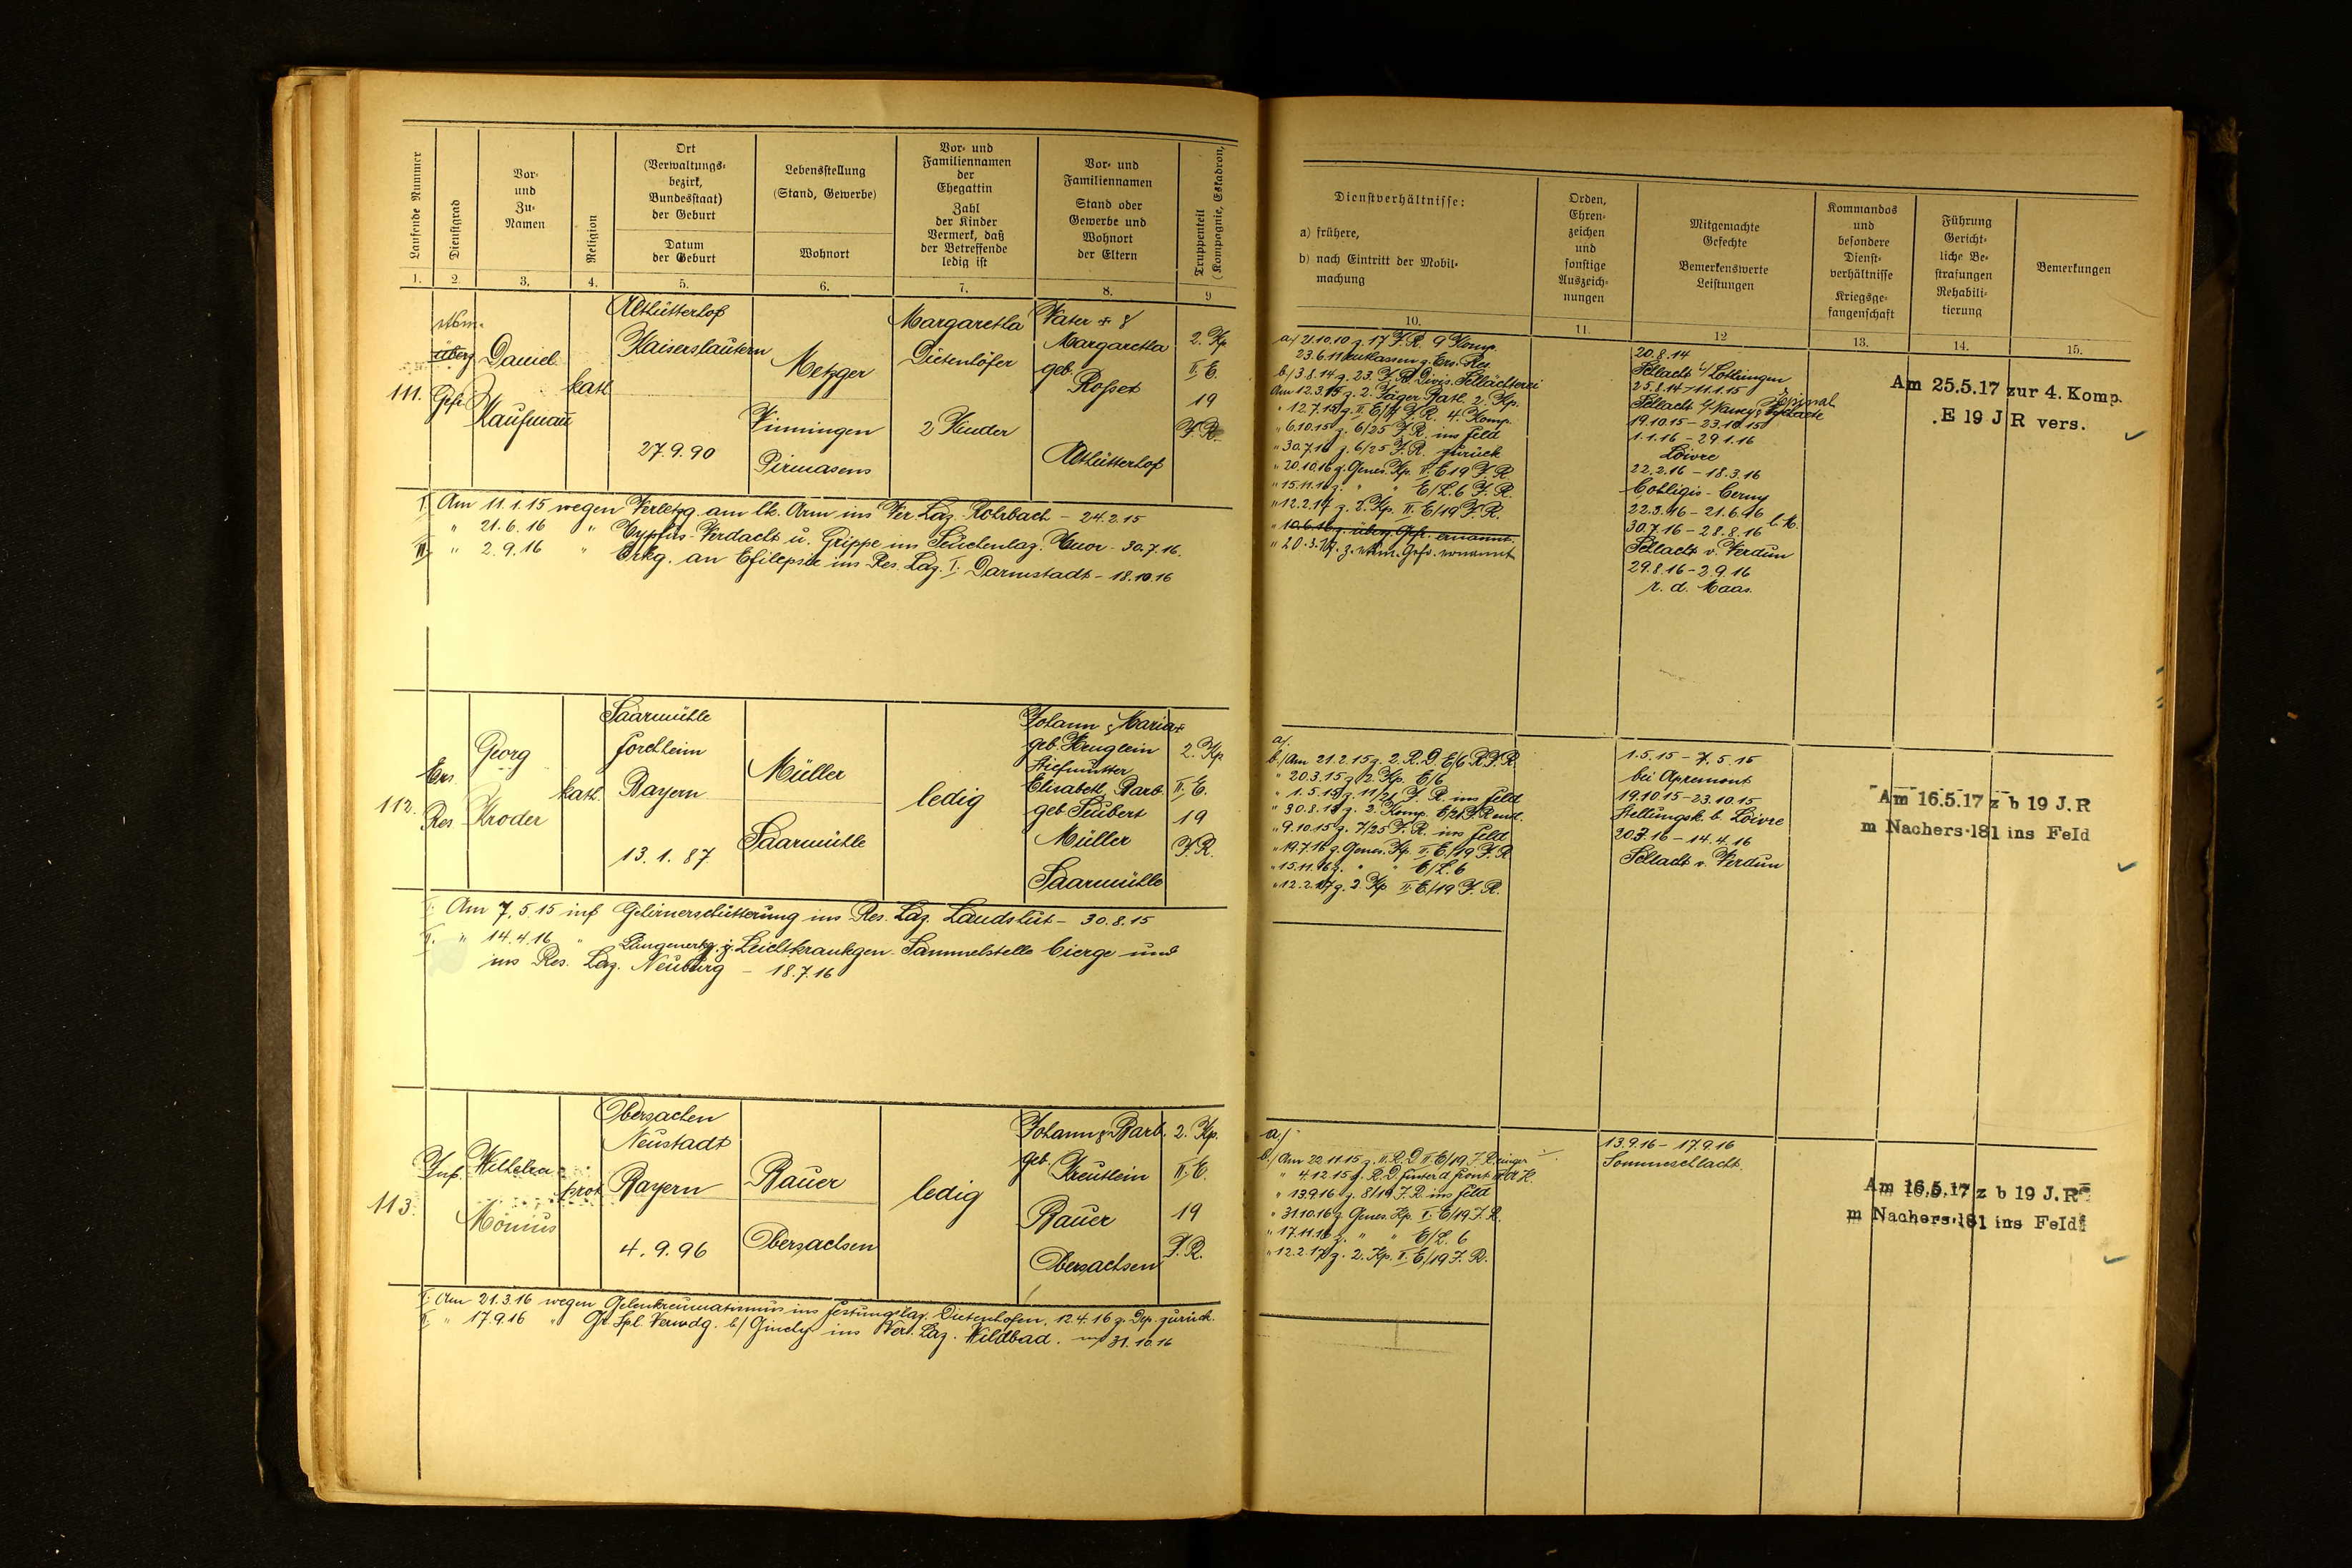 Laufende Nummer
Dienstgrad
Vor-
und
Zu-
Namen
Religion
Ort
(Verwaltungs-
bezirk,
Bundesstaat)
der Geburt
Datum
der Geburt
Lebensstellung
(Stand, Gewerbe)
Wohnort
Vor- und
Familiennamen
der
Ehegattin
Zahl
der Kinder
Vermerk, daß
der Betreffende
ledig ist
Vor- und
Familiennamen
Stand oder
Gewerbe und
Wohnort
der Eltern
Truppenteil
(Kompagnie, Eskadron,
1. 2. 3. 4. 5. 6. 7. 8. 9
Dienstverhältnisse:
a) frühere,
b) nach Eintritt der Mobil-
machung
Orden,
Ehren-
zeichen
und
sonstige
Auszeich-
nungen
Mitgemachte
Gefechte
Bemerkenswerte
Leistungen
Kommandos
und
besondere
Dienst-
verhältnisse
Kriegsge-
fangenschaft
Führung
Gericht-
liche Be-
strafungen
Rehabili-
tierung
Bemerkungen
10. 11. 12 13. 14. 15.
111.
überz.
Gefr.
Daniel
Kaufmann
kath.
Althütterhof
Kaiserslautern
27.9.90
Metzger
Vinningen
Pirmasens
Margaretha
Dietenhöfer
2 Kinder
Vater +
Margaretha
geb.
Rosset
Althütterhof
2. Kp.
II. E.
19
J. R.
I. Am 11.1.15 wegen Verletzg. am lk. Arm ins Ver. Laz. Rohrbach - 24.2.15
" 21.6.16 " Typhus-Verdacht u. Grippe ins Seuchenlaz. - 30.7.16.
III. " 2.9.16 " Erkg. an Epilepsie ins Res. Laz. I. Darmstadt - 18.10.16
a/ 21.10.10 z. 17 J.R. 9 Komp.
23.6.11 entlassen z. Ers. Res.
b/ 3.8.14 z. 23. J.R. Divis. Schlächterei
Am 12.3.15 z. 2. Jäger Batl. 2. Kp.
" 12.7.15 z. II. E/ J.R. 4. Komp.
" 6.10.15 z. 6/25 J.R. ins Feld
" 30.7.16 z. 6/25 J.R. zurück
" 20.10.16 z. Genes. Kp. II. E 19 J.R.
" 15.11.16 z. " " E/L. 6 J.R.
" 12.2.17 z. 2. Kp. II. E/19 J.R.
" 10.6.16 z. überz. Gefr. ernannt.
" 20.3.17 z. Gefr. ernannt
20.8.14
Schlacht i/ Lothringen
25.8.14 - 11.1.15
Schlacht b/ Nancy-Epinal
19.10.15 - 23.10.15
1.1.16 - 29.1.16
Loivre
22.2.16 - 18.3.16
Corbigis - Cerny
22.3.16 - 21.6.16
30.7.16 - 28.8.16
Schlacht v. Verdun
29.8.16 - 2.9.16
r. d. Maas.
Am 25.5.17 zur 4. Komp.
.E 19 J R vers.
112.
Ers.
Res.
Georg
Kroder
kath.
Saarmühle
Forchheim
Bayern
13.1.87
Müller
Saarmühle
ledig
Johann & Maria +
geb. Heuglein
Stiefmutter
Elisabeth Barb.
geb. Seubert
Müller
Saarmühle
2. Kp.
II. E.
19
J. R.
I. Am 7.5.15 inf. Gehirnerschütterung ins Res. Laz. Landshut - 30.8.15
II. " 14.4.16 " Lungenerkg. z. Leichtkrankgen-Sammelstelle Cierge und
ins Res. Laz. Neuburg - 18.7.16
a/.
b/ Am 21.2.15 z. 2. R.D. E/6 R.J.R.
" 20.3.15 z. 2. Kp. E/6
" 1.5.15 z. 11/ J.R. ins Feld
" 30.8.15 z. 2. Komp. E/
" 9.10.15 z. 7/25 J.R. ins Feld
" 19.7.16 z. Genes. Kp. II. E/19 J.R.
" 15.11.16 z. " " E/L. 6
" 12.2.17 z. 2. Kp. II. E/19 J.R.
1.5.15 - 7.5.15
bei Apremont
19.10.15 - 23.10.15
Stellungsk. b. Loivre
20.3.16 - 14.4.16
Schlacht v. Verdun
Am 16.5.17 z b 19 J.R
m Nachers.181 ins Feld
113.
Inf.
Wilhelm
Mönius
prot.
Oberzachen
Neustadt
Bayern
4.9.96
Bauer
Oberzachsen
ledig
Johann & Barb.
geb.
Kreutlein
Bauer
Oberzachsen
2. Kp.
II. E.
19
J. R.
I. Am 21.3.16 wegen Gelenkreumatismus ins Festungslaz. Dietenhofen, 12.4.16 z. Dep. zurück.
II. " 17.9.16 " Gr. Spl. Verwdg. b/ Ginchy ins Ver. Laz. Wildbad. 31.10.16
a/.
b/ Am 22.11.15 z. II. R.D. II. E/19 J.R. einger.
" 4.12.15 z. R.D. hinter d. Front
" 13.9.16 z. 8/19 J.R. ins Feld
" 31.10.16 z. Genes. Kp. II. E/19 J.R.
" 17.11.16 z. " " E/L. 6
" 12.2.17 z. 2. Kp. II. E/19 J.R.
13.9.16 - 17.9.16
Sommeschlacht.
Am 16.5.17 z b 19 J.R
m Nachers.181 ins Feld